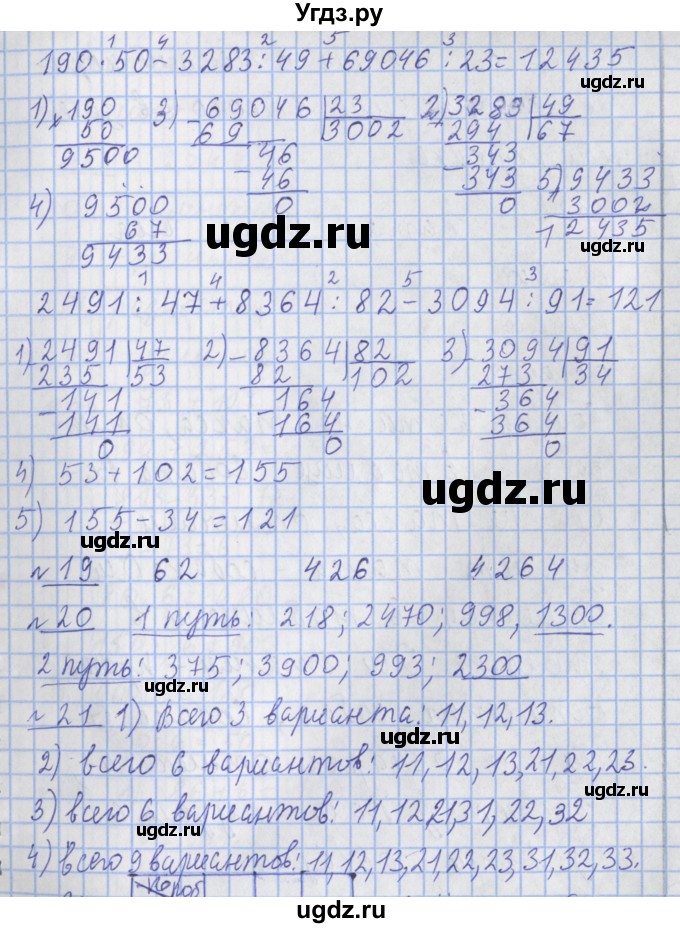 Угдз.ру
190·50-3283:49+69046:23=12435
1) 190 3) 69046 |23 2) 3283 |49
50 69 3002 294 67
9500 46 343
46 343 5) 9433
4) 9500 0 0 3002
67 12435
9433
2491:47+8364:82-3094:91=121
1) 2491 |47 2) 8364 |82 3) 3094 |91
235 53 82 102 273 34
141 164 364
141 164 364
0 0 0
4) 53+102=155
5) 155-34=121
№19 62 426 4264
№20 1 путь: 218; 2470; 998, 1300.
2 путь: 375; 3900; 993; 2300
№21 1) Всего 3 варианта: 11, 12, 13.
2) всего 6 вариантов: 11, 12, 13, 21, 22, 23.
3) всего 6 вариантов: 11, 12, 21, 31, 22, 32
4) всего 9 вариантов: 11, 12, 13, 21, 22, 23, 31, 32, 33.
ugdz.ru
ugdz.ru
ugdz.ru
ugdz.ru
ugdz.ru
ugdz.ru
ugdz.ru
ugdz.ru
ugdz.ru